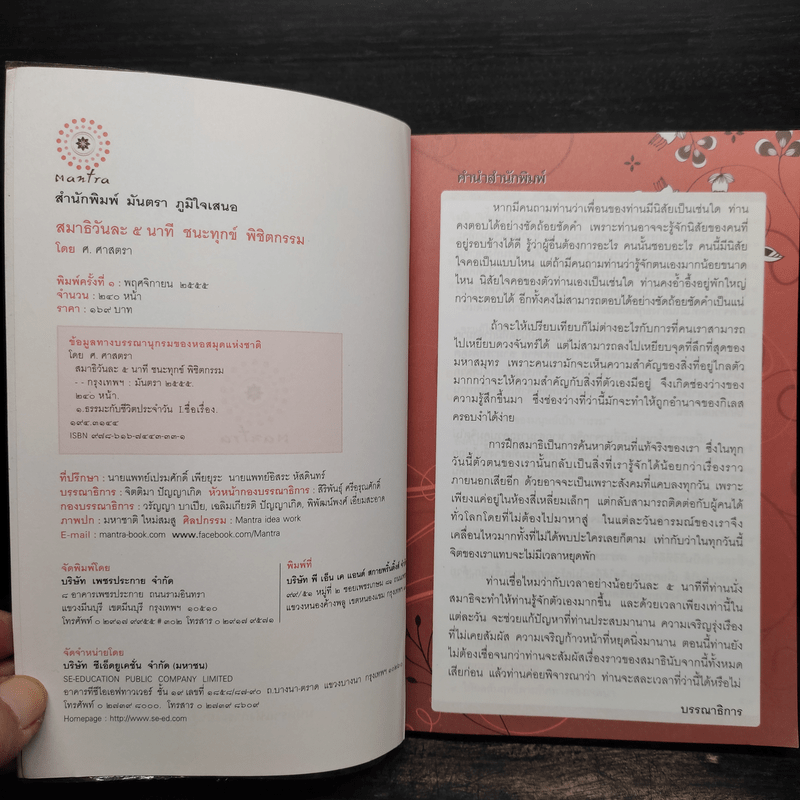 Mantra
สำนักพิมพ์ มันตรา ภูมิใจเสนอ
สมาธิวันละ ๕ นาที ชนะทุกข์ พิชิตกรรม
โดย ศ. ศาสตรา
พิมพ์ครั้งที่ ๑ : พฤศจิกายน ๒๕๕๕
จำนวน : ๒๔๐ หน้า
ราคา : ๑๖๙ บาท
ข้อมูลทางบรรณานุกรมของหอสมุดแห่งชาติ
โดย ศ. ศาสตรา
สมาธิวันละ ๕ นาที ชนะทุกข์ พิชิตกรรม
- - กรุงเทพฯ : มันตรา ๒๕๕๕.
๒๔๐ หน้า.
๑.ธรรมะกับชีวิตประจำวัน I.ชื่อเรื่อง.
๑๙๔.๓๑๔๔
ISBN ๙๗๘-๖๑๖-๗๔๔๓-๓๓-๑
ที่ปรึกษา : นายแพทย์เปรมศักดิ์ เพียยุระ นายแพทย์อิสระ หัสดินทร์
บรรณาธิการ : จิตติมา ปัญญาเกิด หัวหน้ากองบรรณาธิการ : สิริพันธุ์ ศรีอรุณศักดิ์
กองบรรณาธิการ : วรัญญา บาเปีย, เฉลิมเกียรติ ปัญญาเกิด, พิพัฒน์พงศ์ เอี่ยมสะอาด
ภาพปก : มหาชาติ ใหม่สมสู ศิลปกรรม : Mantra idea work
E-mail : mantra-book.com www.facebook.com/Mantra
จัดพิมพ์โดย
บริษัท เพชรประกาย จำกัด
๘ อาคารเพชรประกาย ถนนรามอินทรา
แขวงมีนบุรี เขตมีนบุรี กรุงเทพฯ ๑๐๕๑๐
โทรศัพท์ ๐ ๒๙๑๗ ๙๙๕๕ # ๓๐๒ โทรสาร ๐ ๒๙๑๗ ๙๕๗๑
พิมพ์ที่
บริษัท พี เอ็น เค แอนด์ สกายพริ้นติ้งส์ จำกัด
๗๙/๕๑ หมู่ที่ ๒ ซอยเพชรเกษม ๘๑ ถนน
แขวงหนองค้างพลู เขตหนองแขม กรุงเทพฯ
จัดจำหน่ายโดย
บริษัท ซีเอ็ดยูเคชั่น จำกัด (มหาชน)
SE-EDUCATION PUBLIC COMPANY LIMITED
อาคารทีซีไอเอฟทาวเวอร์ ชั้น ๑๙ เลขที่ ๑๘๕๘/๘๗-๙๐ ถ.บางนา-ตราด แขวงบางนา กรุงเทพฯ
โทรศัพท์ ๐ ๒๗๓๙ ๘๐๐๐. โทรสาร ๐ ๒๗๓๙ ๘๖๐๙
Homepage : http://www.se-ed.com
คำนำสำนักพิมพ์
หากมีคนถามท่านว่าเพื่อนของท่านมีนิสัยเป็นเช่นใด ท่าน
คงตอบได้อย่างชัดถ้อยชัดคำ เพราะท่านอาจจะรู้จักนิสัยของคนที่
อยู่รอบข้างได้ดี รู้ว่าผู้อื่นต้องการอะไร คนนั้นชอบอะไร คนนี้มีนิสัย
ใจคอเป็นแบบไหน แต่ถ้ามีคนถามท่านว่ารู้จักตนเองมากน้อยขนาด
ไหน นิสัยใจคอของตัวท่านเองเป็นเช่นใด ท่านคงอ้ำอึ้งอยู่พักใหญ่
กว่าจะตอบได้ อีกทั้งคงไม่สามารถตอบได้อย่างชัดถ้อยชัดคำเป็นแน่
ถ้าจะให้เปรียบเทียบก็ไม่ต่างอะไรกับการที่คนเราสามารถ
ไปเหยียบดวงจันทร์ได้ แต่ไม่สามารถลงไปเหยียบจุดที่ลึกที่สุดของ
มหาสมุทร เพราะคนเรามักจะเห็นความสำคัญของสิ่งที่อยู่ไกลตัว
มากกว่าจะให้ความสำคัญกับสิ่งที่ตัวเองมีอยู่ จึงเกิดช่องว่างของ
ความรู้สึกขึ้นมา ซึ่งช่องว่างที่ว่านี้มักจะทำให้ถูกอำนาจของกิเลส
ครอบงำได้ง่าย
การฝึกสมาธิเป็นการค้นหาตัวตนที่แท้จริงของเรา ซึ่งในทุก
วันนี้ตัวตนของเรานั้นกลับเป็นสิ่งที่เรารู้จักได้น้อยกว่าเรื่องราว
ภายนอกเสียอีก ด้วยอาจจะเป็นเพราะสังคมที่แคบลงทุกวัน เพราะ
เพียงแค่อยู่ในห้องสี่เหลี่ยมเล็กๆ แต่กลับสามารถติดต่อกับผู้คนได้
ทั่วโลกโดยที่ไม่ต้องไปมาหาสู่ ในแต่ละวันอารมณ์ของเราจึง
เคลื่อนไหวมากทั้งที่ไม่ได้พบปะใครเลยก็ตาม เท่ากับว่าในทุกวันนี้
จิตของเราแทบจะไม่มีเวลาหยุดพัก
ท่านเชื่อไหมว่ากับเวลาอย่างน้อยวันละ ๕ นาทีที่ท่านนั่ง
สมาธิจะทำให้ท่านรู้จักตัวเองมากขึ้น และด้วยเวลาเพียงเท่านี้ใน
แต่ละวัน จะช่วยแก้ปัญหาที่ท่านประสบมานาน ความเจริญรุ่งเรือง
ที่ไม่เคยสัมผัส ความเจริญก้าวหน้าที่หยุดนิ่งมานาน ตอนนี้ท่านยัง
ไม่ต้องเชื่อจนกว่าท่านจะสัมผัสเรื่องราวของสมาธินับจากนี้ทั้งหมด
เสียก่อน แล้วท่านค่อยพิจารณาว่า ท่านจะสละเวลาที่ว่านี้ได้หรือไม่
บรรณาธิการ